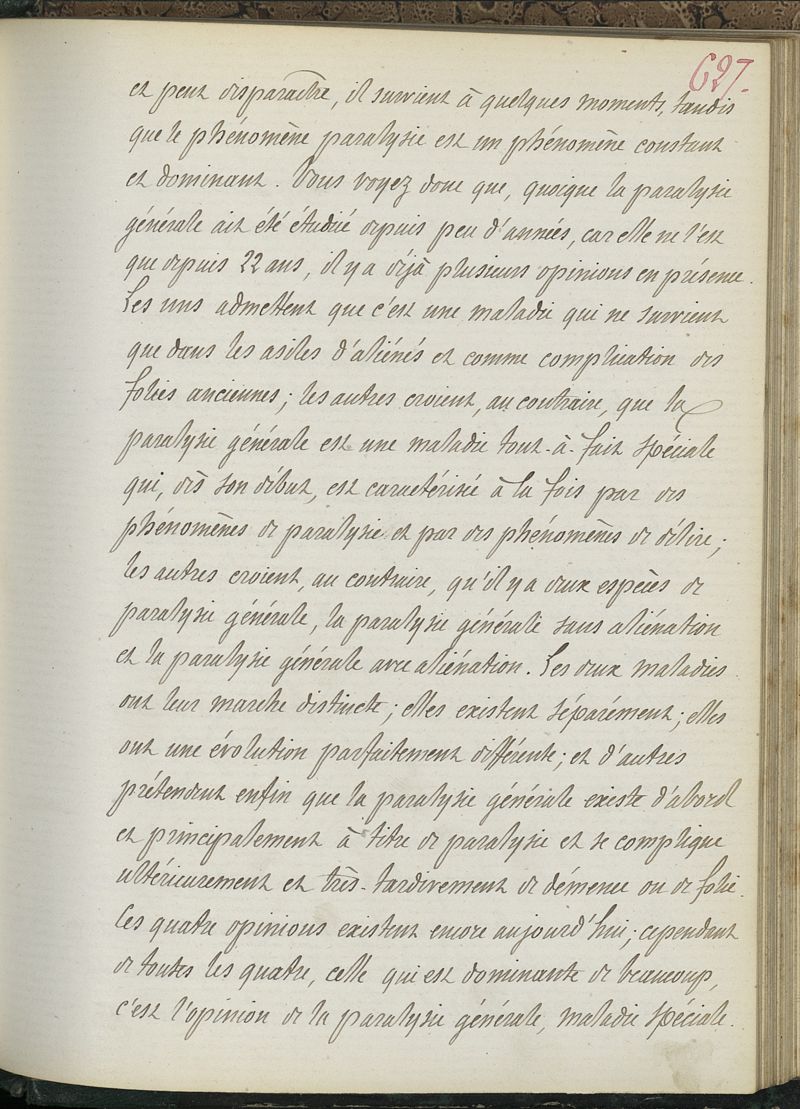 627.
et peut disparaître, il survient à quelques moments, tandis
que le phénomène paralysie est un phénomène constant
et dominant. Vous voyez donc que, quoique la paralysie
générale ait été étudiée depuis peu d'années, car elle ne l'est
que depuis 22 ans, il y a déjà plusieurs opinions en présence.
Les uns admettent que c'est une maladie qui ne survient
que dans les asiles d'aliénés et comme complication des
folies anciennes; les autres croient, au contraire, que la
paralysie générale est une maladie tout-à-fait spéciale
qui, dès son début, est caractérisée à la fois par des
phénomènes de paralysie et par des phénomènes de délire;
les autres croient, au contraire, qu'il y a deux espèces de
paralysie générale, la paralysie générale sans aliénation
et la paralysie générale avec aliénation. Les deux maladies
ont leur marche distincte; elles existent séparément; elles
ont une évolution parfaitement différente; et d'autres
prétendent enfin que la paralysie générale existe d'abord
et principalement à titre de paralysie et se complique
ultérieurement et très-tardivement de démence ou de folie.
Ces quatre opinions existent encore aujourd'hui; cependant
de toutes les quatre, celle qui est dominante de beaucoup,
c'est l'opinion de la paralysie générale, maladie spéciale.